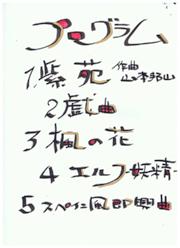 プログラム
1 紫苑 作曲 山本邦山
2 戯曲
3 楓の花
4 エルフ-妖精-
5 スペイン風即興曲